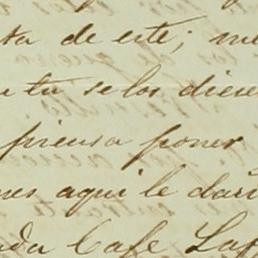 ta de este; me
tu se los diese
piensa poner
nes aqui le dari
da Cafe Laf